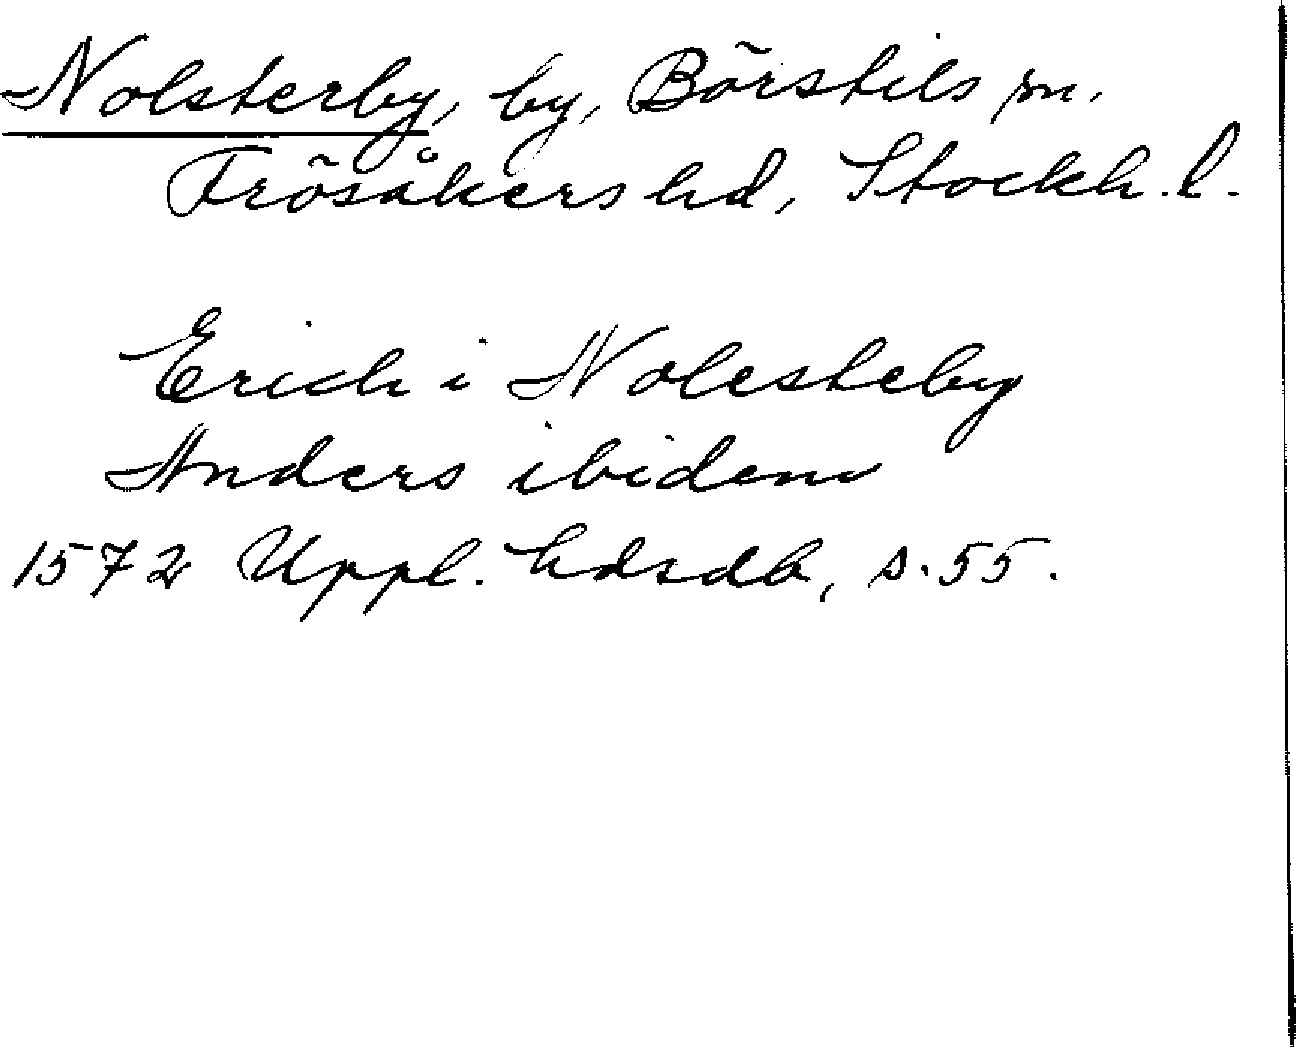 Nolsterby, by, Börstils sn.
Frösåkers hd, Stockh. l.
Erich i Nolesteby
Anders ibidem
1572 Uppl. hdsdb, s. 55.